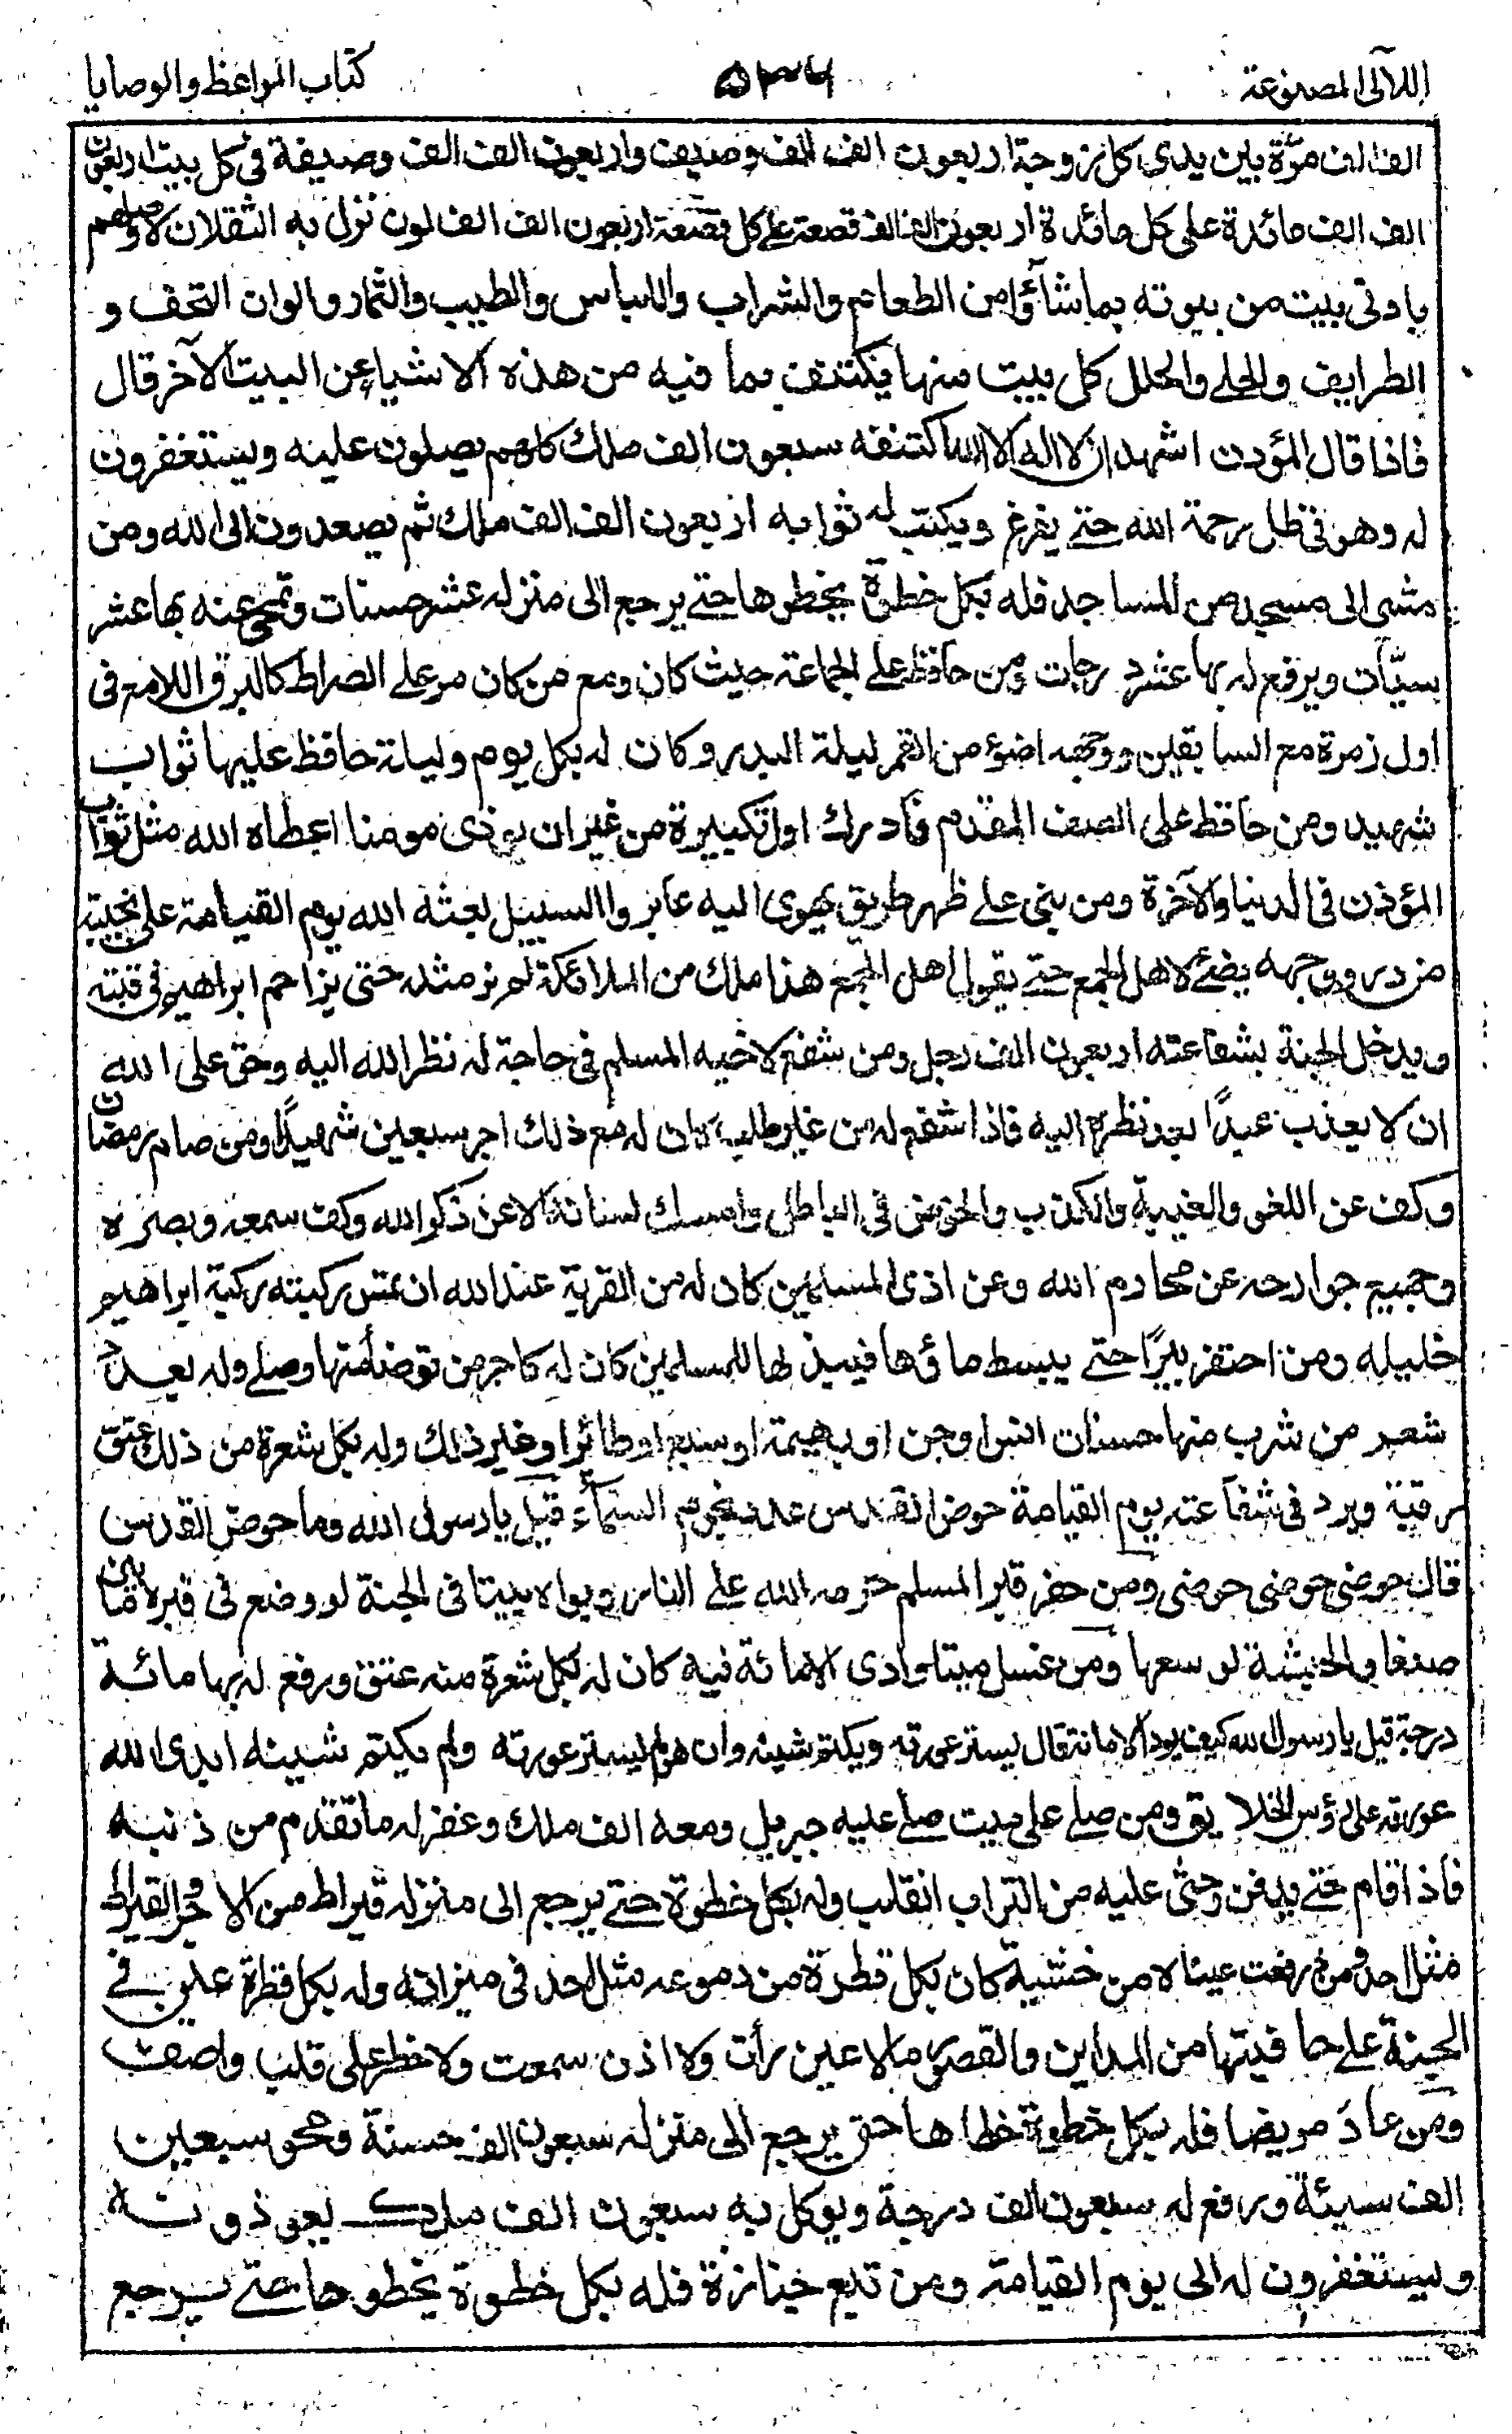 اللآلى المصنوعة
كتاب المواعظ والوصايا
الف الف مرّة بين يدى كل زوجة اربعون الف الف وصيف واربعون الف الف وصيفة فى كل بيت اربعون
الف الف مائدة على كل مائدة اربعون الف الف قصعة على كل قصعة اربعون الف الف لون نزل به الثقلان لاوصلهم
بادنى بيت من بيوته بما شاؤا من الطعام والشراب واللباس والطيب والثمار والوان التحف و
الطرايف والحلى والحلل كل بيت منها يكتنف بما فيه من هذه الاشياء عن البيت الآخر قال
فاذا قال المؤذن اشهد ان لا اله الا الله اكتنفه سبعون الف ملك كلهم يصلون عليه ويستغفرون
له وهو فى ظل رحمة الله حتى يفرغ ويكتب له ثوابه اربعون الف الف ملك ثم يصعدون الى الله ومن
مشى الى مسجد من المساجد فله بكل خطوة يخطوها حتى يرجع الى منزله عشر حسنات وتمحى عنه بها عشر
سيّآت ويرفع له بها عشر درجات ومن حافظ على الجماعة حيث كان ومع من كان مر على الصراط كالبرق اللامع فى
اول زمرة مع السابقين ووجهه اضوء من القمر ليلة البدر وكان له بكل يوم وليلة حافظ عليها ثواب
شهيد ومن حافظ على الصف المقدم فادرك اول تكبيرة من غير ان يوذى مومنا اعطاه الله مثل ثواب
المؤذن فى الدنيا والآخرة ومن بنى على ظهر طريق يهوى اليه عابروا السبيل بعثه الله يوم القيامة على نجيبة
من در ووجهه يضئ لاهل الجمع حتى يقول اهل الجمع هذا ملك من الملائكة لم نر مثله حتى يزاحم ابراهيم فى قبته
ويدخل الجنة بشفاعته اربعون الف رجل ومن شفع لاخيه المسلم فى حاجة له نظر الله اليه وحق على الله
ان لا يعذب عبدًا بعد نظره اليه فاذا شفع له من غير طلب كان له مع ذلك اجر سبعين شهيدًا ومن صام رمضان
وكف عن اللغو والغيبة والكذب والخوض فى الباطل وامسك لسانه الا عن ذكر الله وكف سمعه وبصره
وجميع جوارحه عن محارم الله وعن اذى المسلمين كان له من القربة عند الله ان تمس ركبته ركبة ابراهيم
خليله ومن احتفر بيرًا حتى يبسط ماؤها فيبذلها للمسلمين كان له كاجر من توضأ منها وصلى وله بعدد
شعر من شرب منها حسنات انس او جن او بهيمة او سبع او طائر او غير ذلك وله بكل شعرة من ذلك عتق
رقبة ويرد فى شفاعته يوم القيامة حوض القدس عدد نجوم السماء قيل يا رسول الله وما حوض القدس
قال حوضى حوضى حوضى ومن حفر قبر المسلم حرمه الله على النار وبواه بيتا فى الجنة لو وضع فى قبره ما بين
صنعا والحبشة لوسعها ومن غسل ميتا وادى الامانة فيه كان له بكل شعرة منه عتق ورفع له بها مائة
درجة قيل يا رسول الله كيف يود الامانة قال يستر عورته ويكتم شينه وان هو لم يستر عورته ولم يكتم شينه ابدى الله
عورته على رؤس الخلايق ومن صلى على ميت صلى عليه جبريل ومعه الف ملك وغفر له ما تقدم من ذنبه
فاذا قام حتى يدفن وحثى عليه من التراب انقلب وله بكل خطوة حتى يرجع الى منزله قيراط من الاجر والقيراط
مثل احد ومن رفعت عيناه من خشية كان بكل قطرة من دموعه مثل احد فى ميزانه وله بكل قطرة عين فى
الجنة على حافيتها من المداين والقصور ما لا عين رأت ولا اذن سمعت ولا خطر على قلب واصف
ومن عاد مريضا فله بكل خطوة خطاها حتى يرجع الى منزله سبعون الف حسنة ومحو سبعين
الف سيئة ورفع له سبعون الف درجة ويوكل به سبعون الف ملك يعودونه
ويستغفرون له الى يوم القيامة ومن تبع جنازة فله بكل خطوة يخطوها حتى يرجع